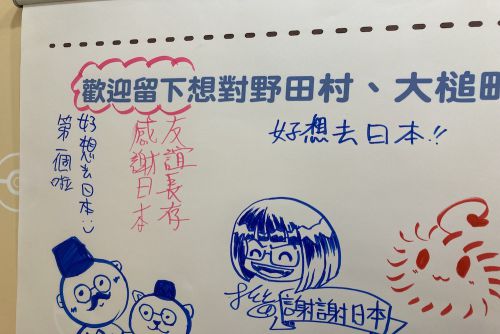 歡迎留下想對野田村、大槌町
好想去日本!!
好想去日本:)
第一個啦
友誼長存
感謝日本
謝謝日本